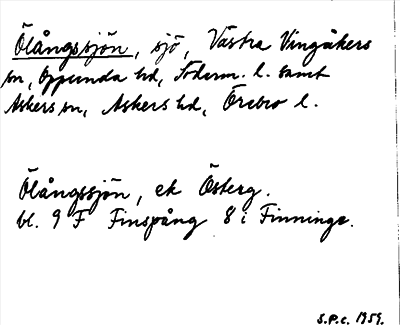 Ölångssjön, sjö, Västra Vingåkers
sn, Oppunda hd, Söderm. l. samt
Askers sn, Askers hd, Örebro l.
Ölångssjön, ek Österg.
bl. 9 F Finspång 8 i Finninge.
S.P.c. 1959.